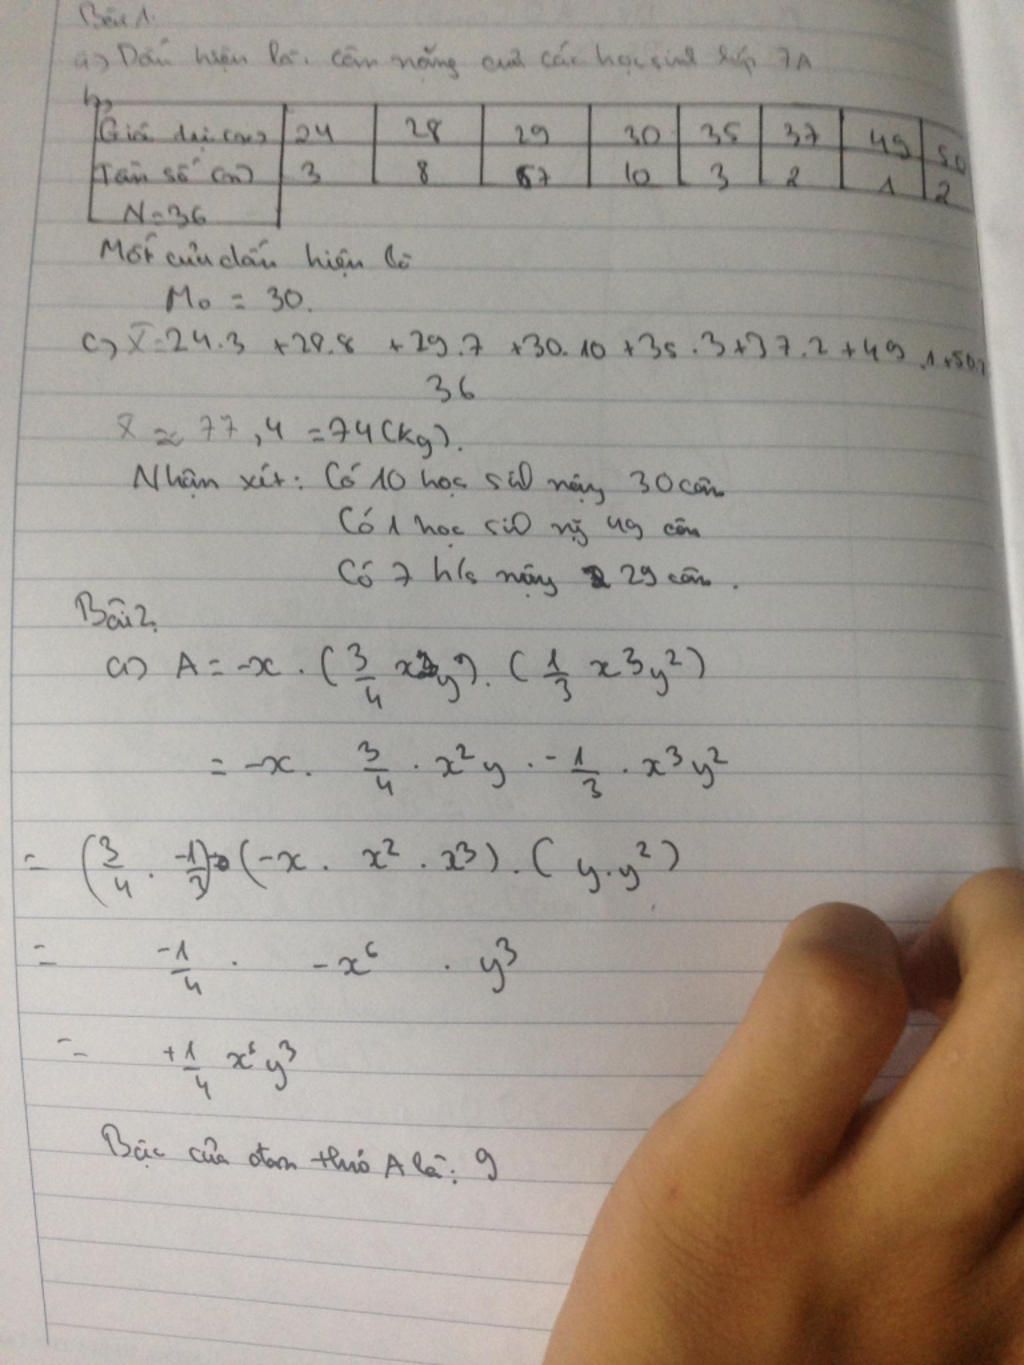 Bài 1.
a) Dấu hiệu là: cân nặng của các học sinh lớp 7A
b)
Giá trị (x) 24 28 29 30 35 37 49 50
Tần số (n) 3 8 7 10 3 2 1 2
N=36
Mốt của dấu hiệu là
M₀ = 30.
c) X̄=24.3 +28.8 +29.7 +30.10 +35.3+37.2+49.1+50.2
36
x̄ ≈ 77,4 =74(kg).
Nhận xét: Có 10 học sin nặng 30 cân
Có 1 học sin nặg 49 cân
Có 7 h/s nặng 29 cân.
Bài 2.
a) A = -x . (3/4 x²y). (1/3 x³y²)
= -x. 3/4 . x²y . -1/3 . x³y²
= (3/4 . -1/3). (-x . x² . x³) . ( y.y²)
= -1/4 . -x⁶ . y³
= +1/4 x⁶y³
Bậc của đơn thức A là: 9